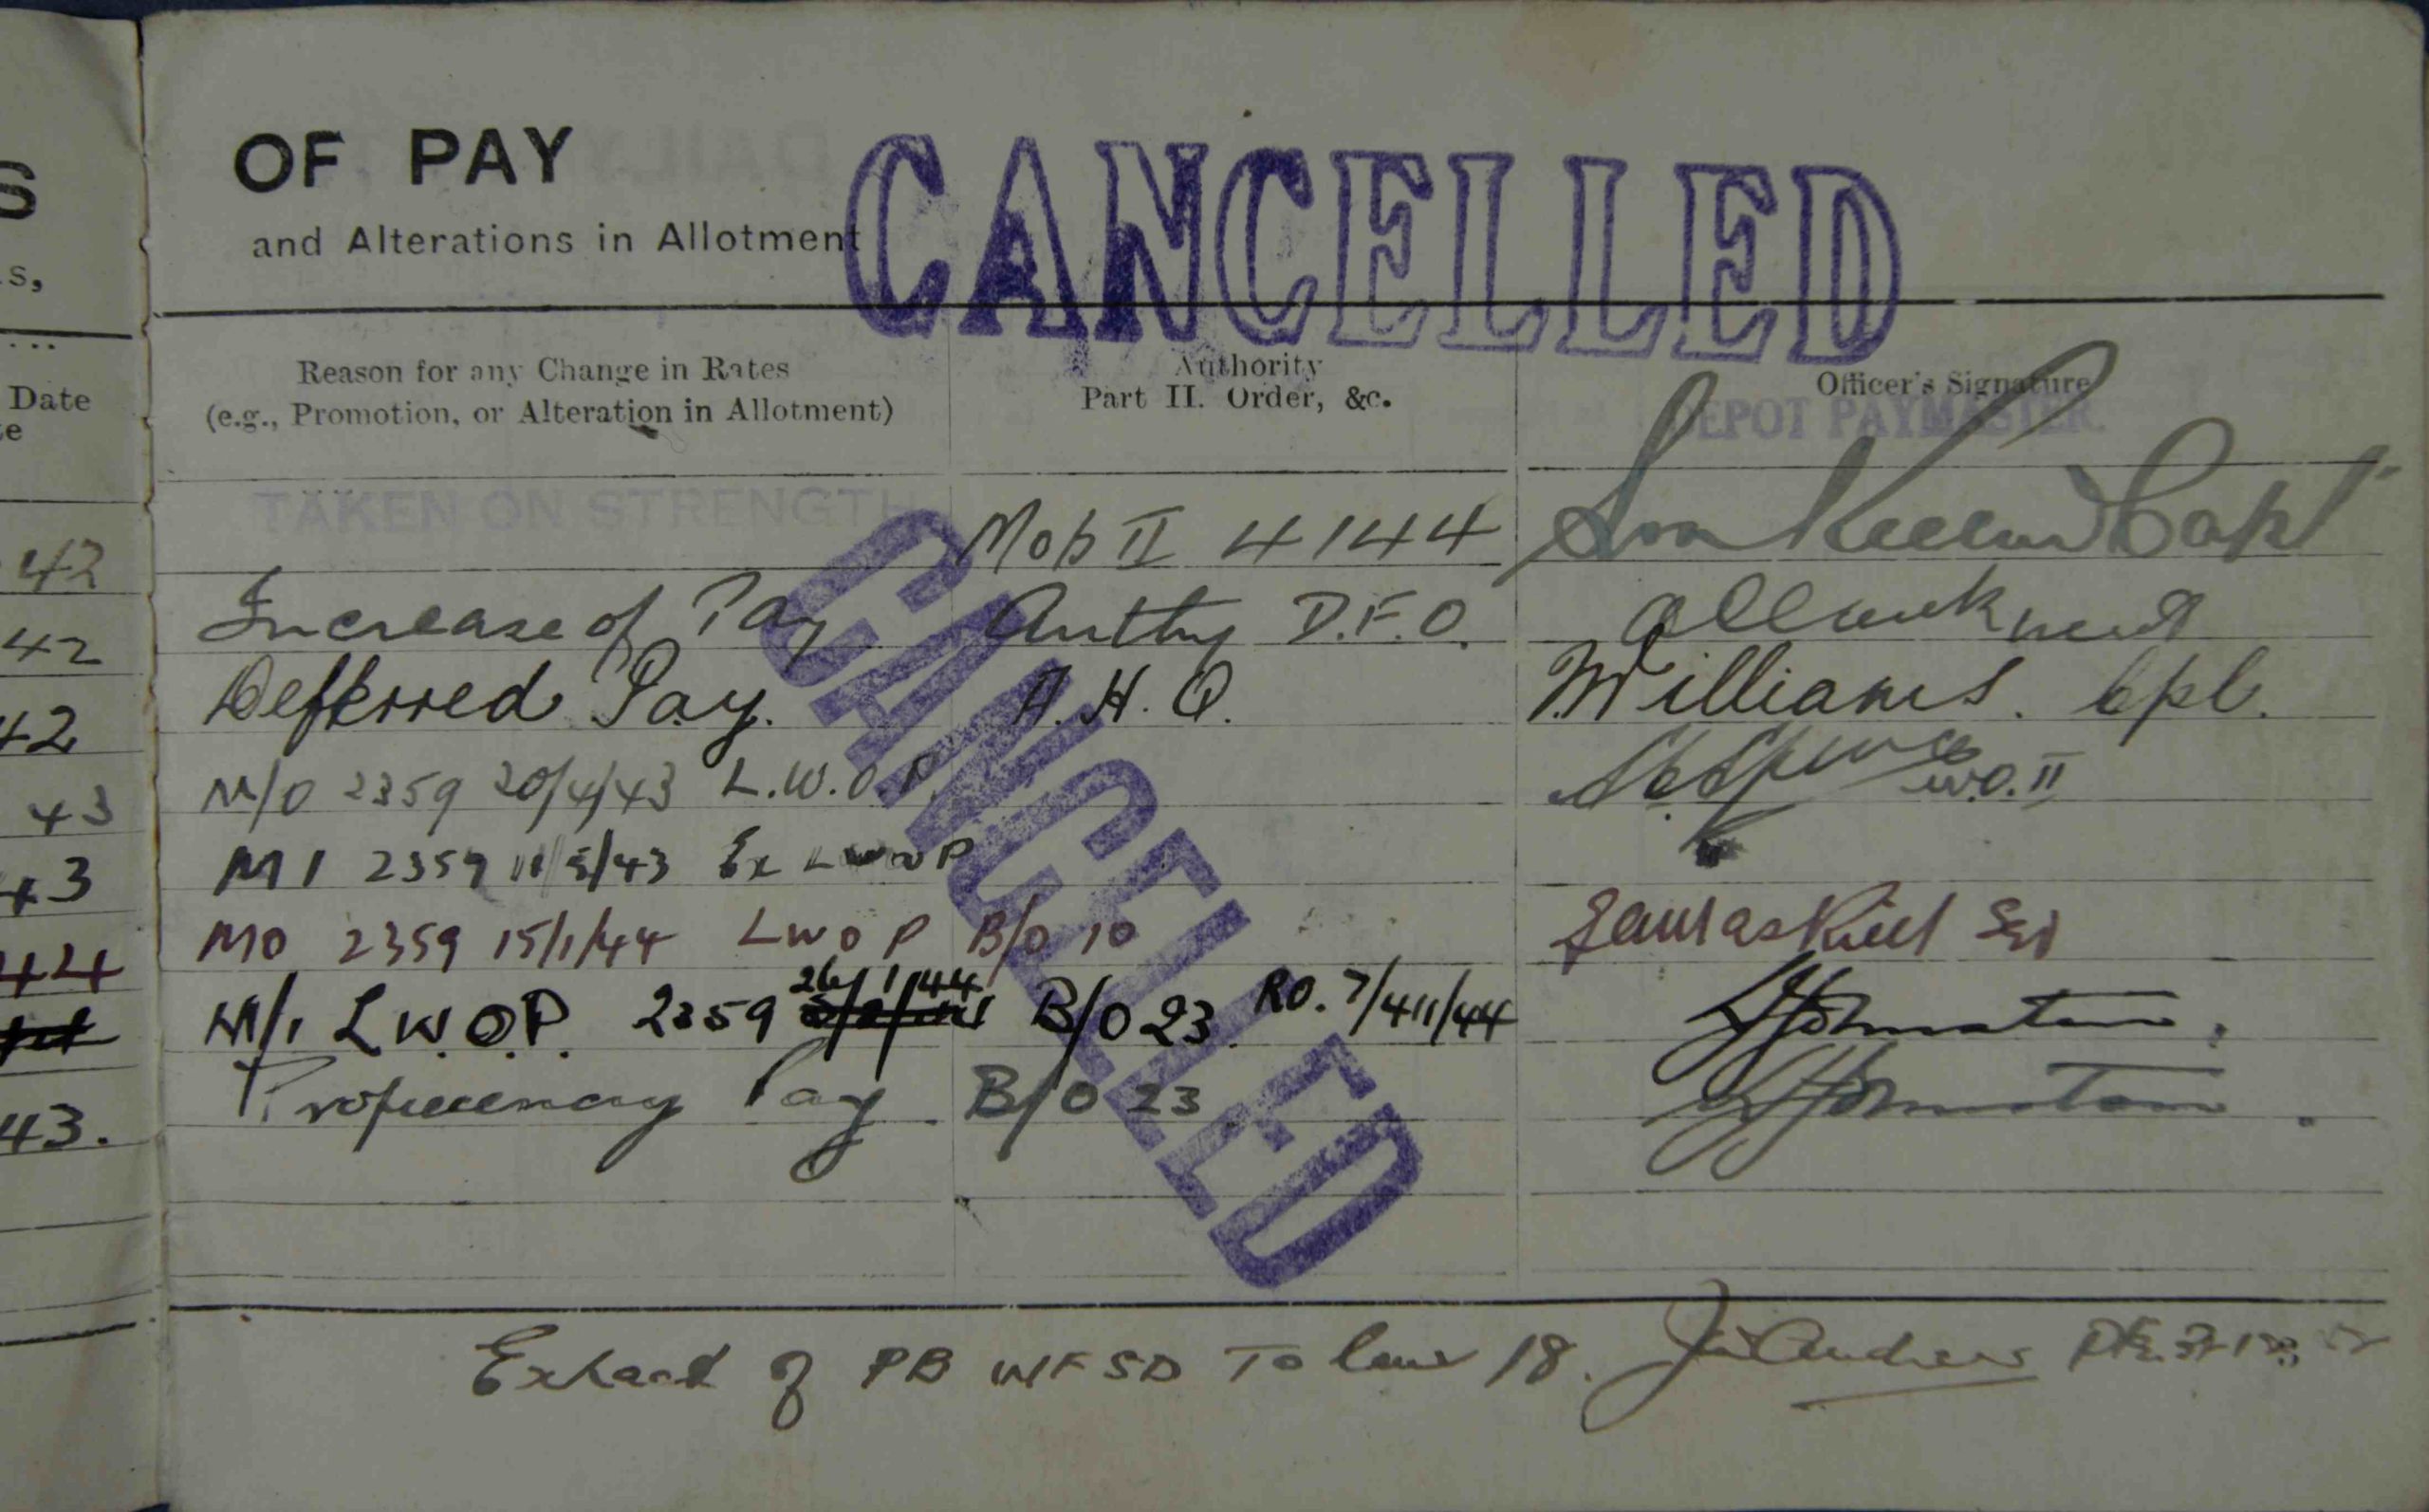 S
s,
Date
te
42
42
42
43
43
44
43.
OF PAY
CANCELLED
and Alterations in Allotment
Reason for any Change in Rates
(e.g., Promotion, or Alteration in Allotment)
Authority
Part II. Order, &c.
Officer's Signature
DEPOT PAYMASTER.
TAKEN ON STRENGTH
Mob II 4144 Capt
Increase of Pay Authy D.F.O.
Defferred Pay. A.H.Q. Williams. Cpl.
CANCELLED
M/O 2359 20/4/43 L.W.O.P. W.O. II
M I 2359 11/5/43 Ex LWOP
MO 2359 15/1/44 LWOP B/O 10
M/I L.W.O.P. 2359 26/1/44 B/O 23. RO. 7/411/44 Johnston.
Proficiency Pay B/O 23 Johnston.
of PB WFSD To 18.